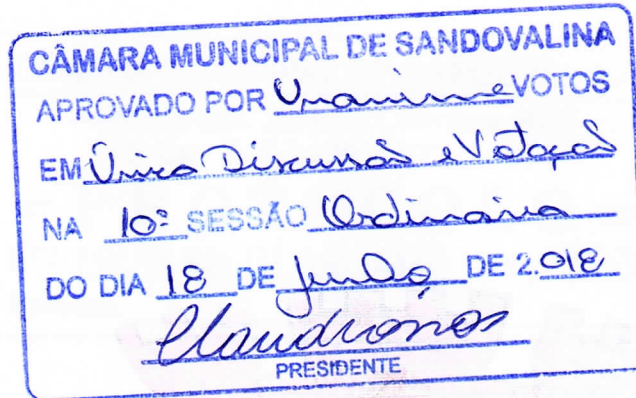 CÂMARA MUNICIPAL DE SANDOVALINA
APROVADO POR Unanime VOTOS
EM Única Discussão e Votação
NA 10ª SESSÃO Ordinária
DO DIA 18 DE Junho DE 2.018
PRESIDENTE